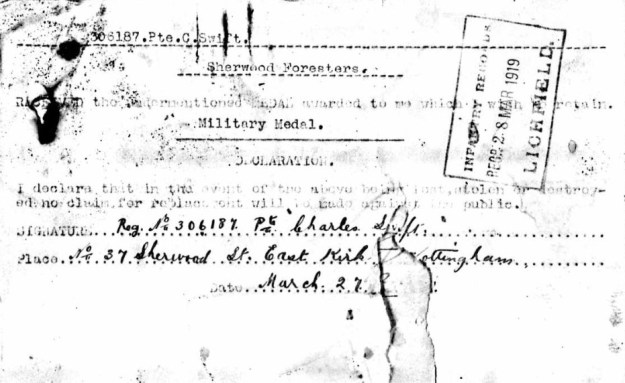 306187.Pte.C.Swift.
Sherwood Foresters.
RECEIVED the undermentioned MEDAL awarded to me which I wish to retain.
Military Medal.
DECLARATION.
I declare that in the event of the above being lost,stolen or destroy-
ed.no claim for replacement will be made against the public.
SIGNATURE. Reg. No 306187. Pte Charles Swift.
Place. No 37 Sherwood St. East Kirk Nottingham.
Date. March. 27
INFANTRY RECORDS
28 MAR 1919
LICHFIELD.